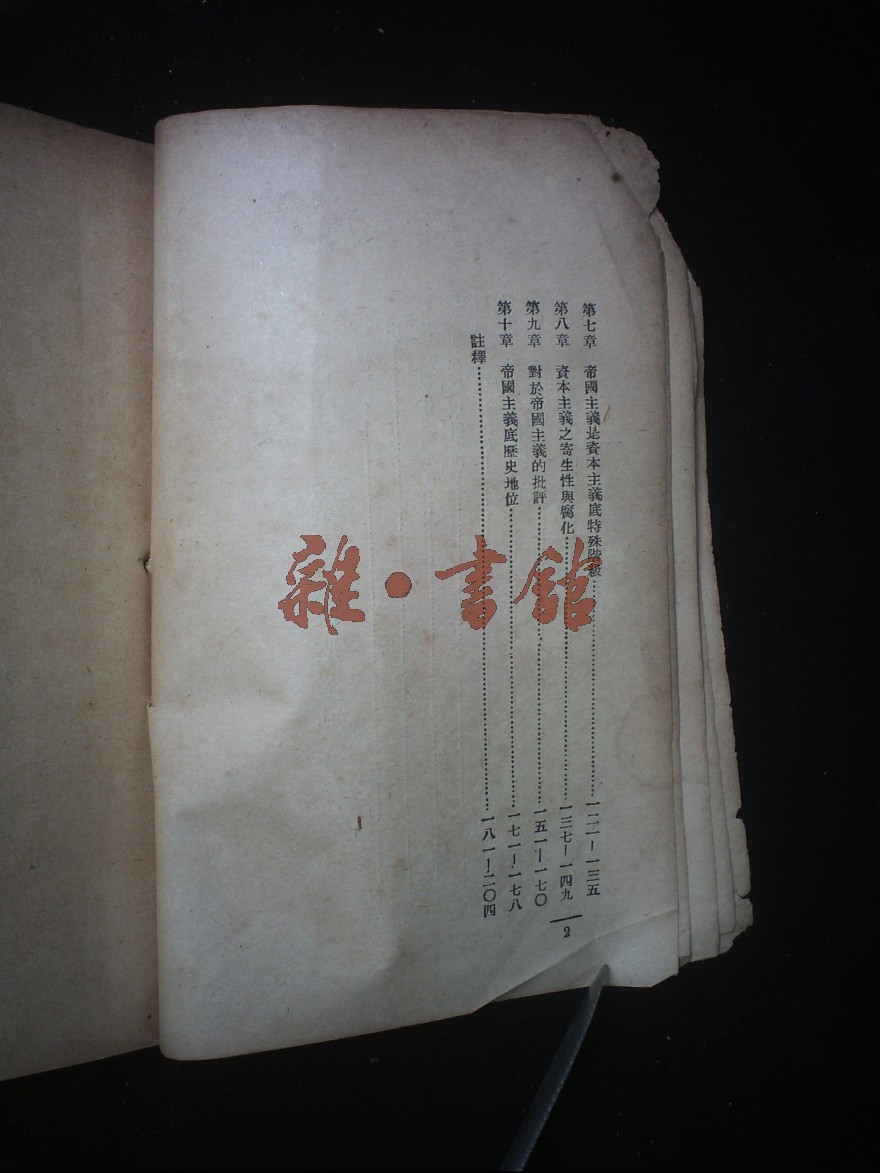 第七章 帝國主義是資本主義底特殊階級……一二一—一三五
第八章 資本主義之寄生性與腐化……一三七—一四九
第九章 對於帝國主義的批評……一五一—一七〇
第十章 帝國主義底歷史地位……一七一—一七八
註釋……一八一—二〇四
2
雜·書館